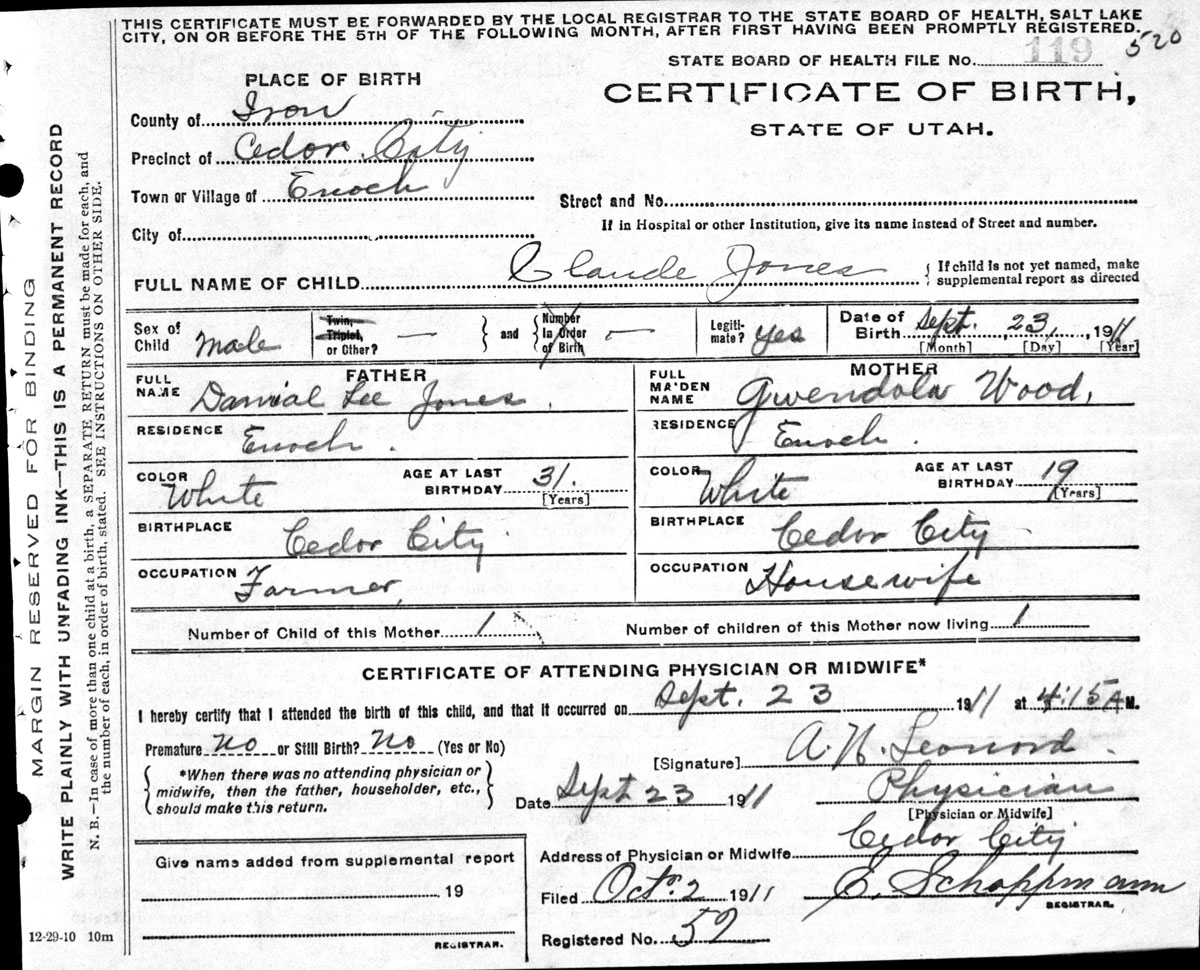 THIS CERTIFICATE MUST BE FORWARDED BY THE LOCAL REGISTRAR TO THE STATE BOARD OF HEALTH, SALT LAKE
CITY, ON OR BEFORE THE 5TH OF THE FOLLOWING MONTH, AFTER FIRST HAVING BEEN PROMPTLY REGISTERED.
520
STATE BOARD OF HEALTH FILE No. 119
PLACE OF BIRTH
CERTIFICATE OF BIRTH,
STATE OF UTAH.
County of Iron
Precinct of Cedar City
Town or Village of Enoch
Street and No.
If in Hospital or other Institution, give its name instead of Street and number.
City of
FULL NAME OF CHILD Claude Jones { If child is not yet named, make
supplemental report as directed
Sex of Child Male Twin, Triplet, or Other? — } and { Number In Order of Birth — Legiti- mate? yes Date of Birth Sept. 23, 1911
[Month] [Day] [Year]
FATHER
FULL NAME Danial Lee Jones.
RESIDENCE Enoch.
COLOR White AGE AT LAST BIRTHDAY 31. [Years]
BIRTHPLACE Cedar City
OCCUPATION Farmer,
MOTHER
FULL MAIDEN NAME Gwendola Wood,
RESIDENCE Enoch.
COLOR White AGE AT LAST BIRTHDAY 19 [Years]
BIRTHPLACE Cedar City
OCCUPATION Housewife
Number of Child of this Mother 1 Number of children of this Mother now living 1
CERTIFICATE OF ATTENDING PHYSICIAN OR MIDWIFE*
I hereby certify that I attended the birth of this child, and that it occurred on Sept. 23 1911 at 4:15 A M.
Premature no or Still Birth? No (Yes or No)
[Signature] A. N. Leonard.
{ *When there was no attending physician or
midwife, then the father, householder, etc.,
should make this return. }
Date Sept 23 1911 Physician
[Physician or Midwife]
Address of Physician or Midwife Cedar City
Give name added from supplemental report
19
REGISTRAR.
Filed Oct. 2 1911 E. Schoppmann
REGISTRAR.
Registered No. 59
12-29-10 10m
MARGIN RESERVED FOR BINDING
WRITE PLAINLY WITH UNFADING INK—THIS IS A PERMANENT RECORD
N. B.—In case of more than one child at a birth, a SEPARATE RETURN must be made for each, and
the number of each, in order of birth, stated. SEE INSTRUCTIONS ON OTHER SIDE.